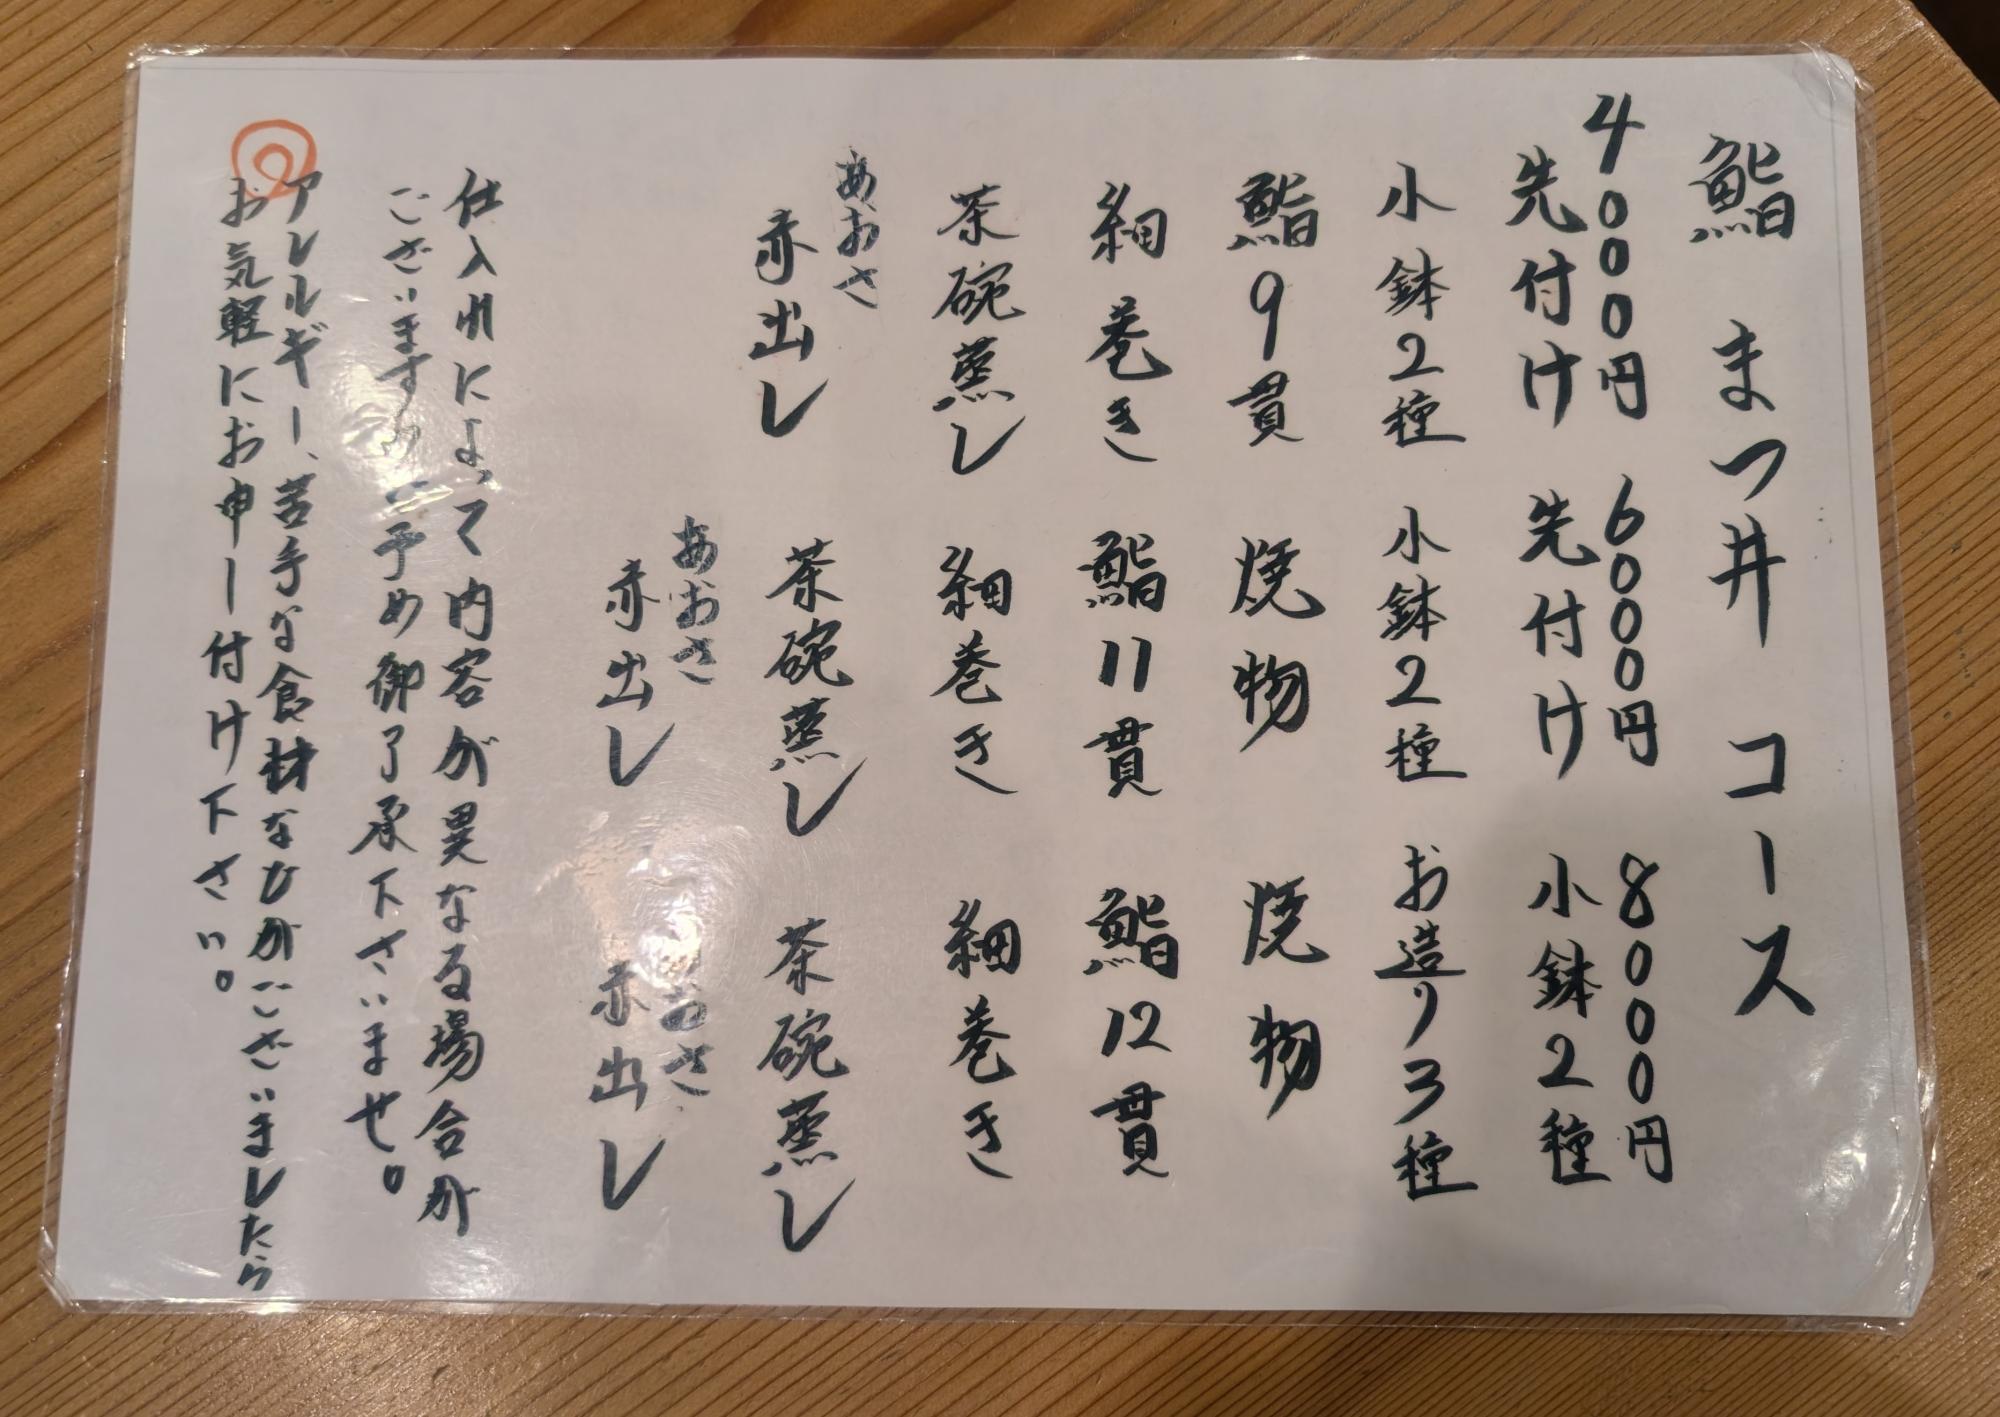 鮨 まつ井 コース
4000円
先付け
小鉢2種
鮨9貫
細巻き
茶碗蒸し
あおさ
赤出し
6000円
先付け
小鉢2種
焼物
鮨11貫
細巻き
茶碗蒸し
あおさ
赤出し
8000円
小鉢2種
お造り3種
焼物
鮨12貫
細巻き
茶碗蒸し
あおさ
赤出し
仕入れによって内容が異なる場合が
ございますので予め御了承下さいませ。
アレルギー、苦手な食材などがございましたら
お気軽にお申し付け下さい。